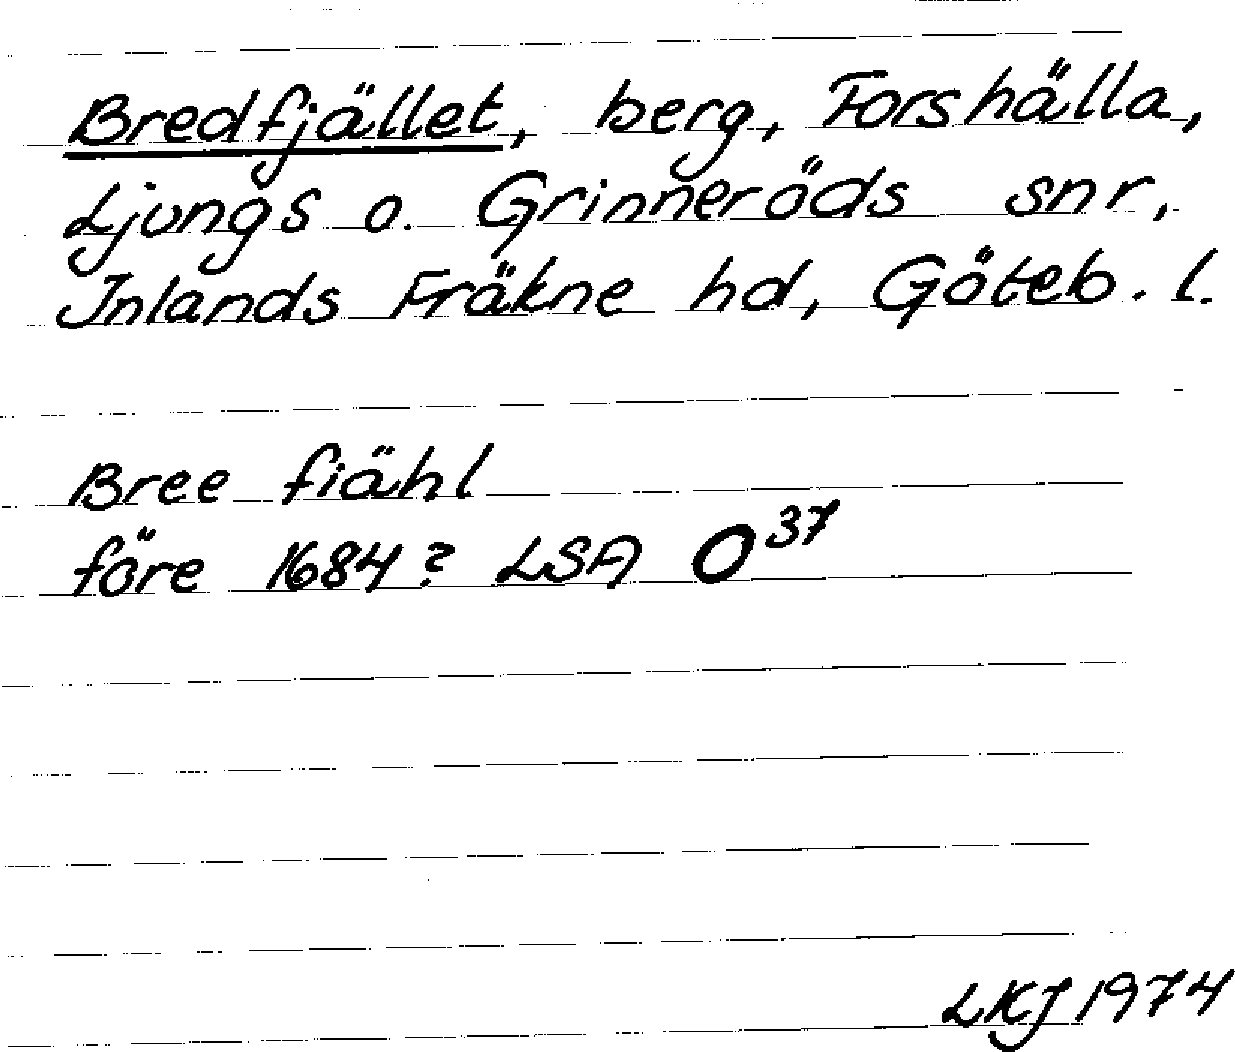 Bredfjället, berg, Forshälla,
Ljungs o. Grinneröds snr,
Inlands Fräkne hd, Göteb. l.
Bree fiähl
före 1684? LSA O³⁷
LKJ 1974